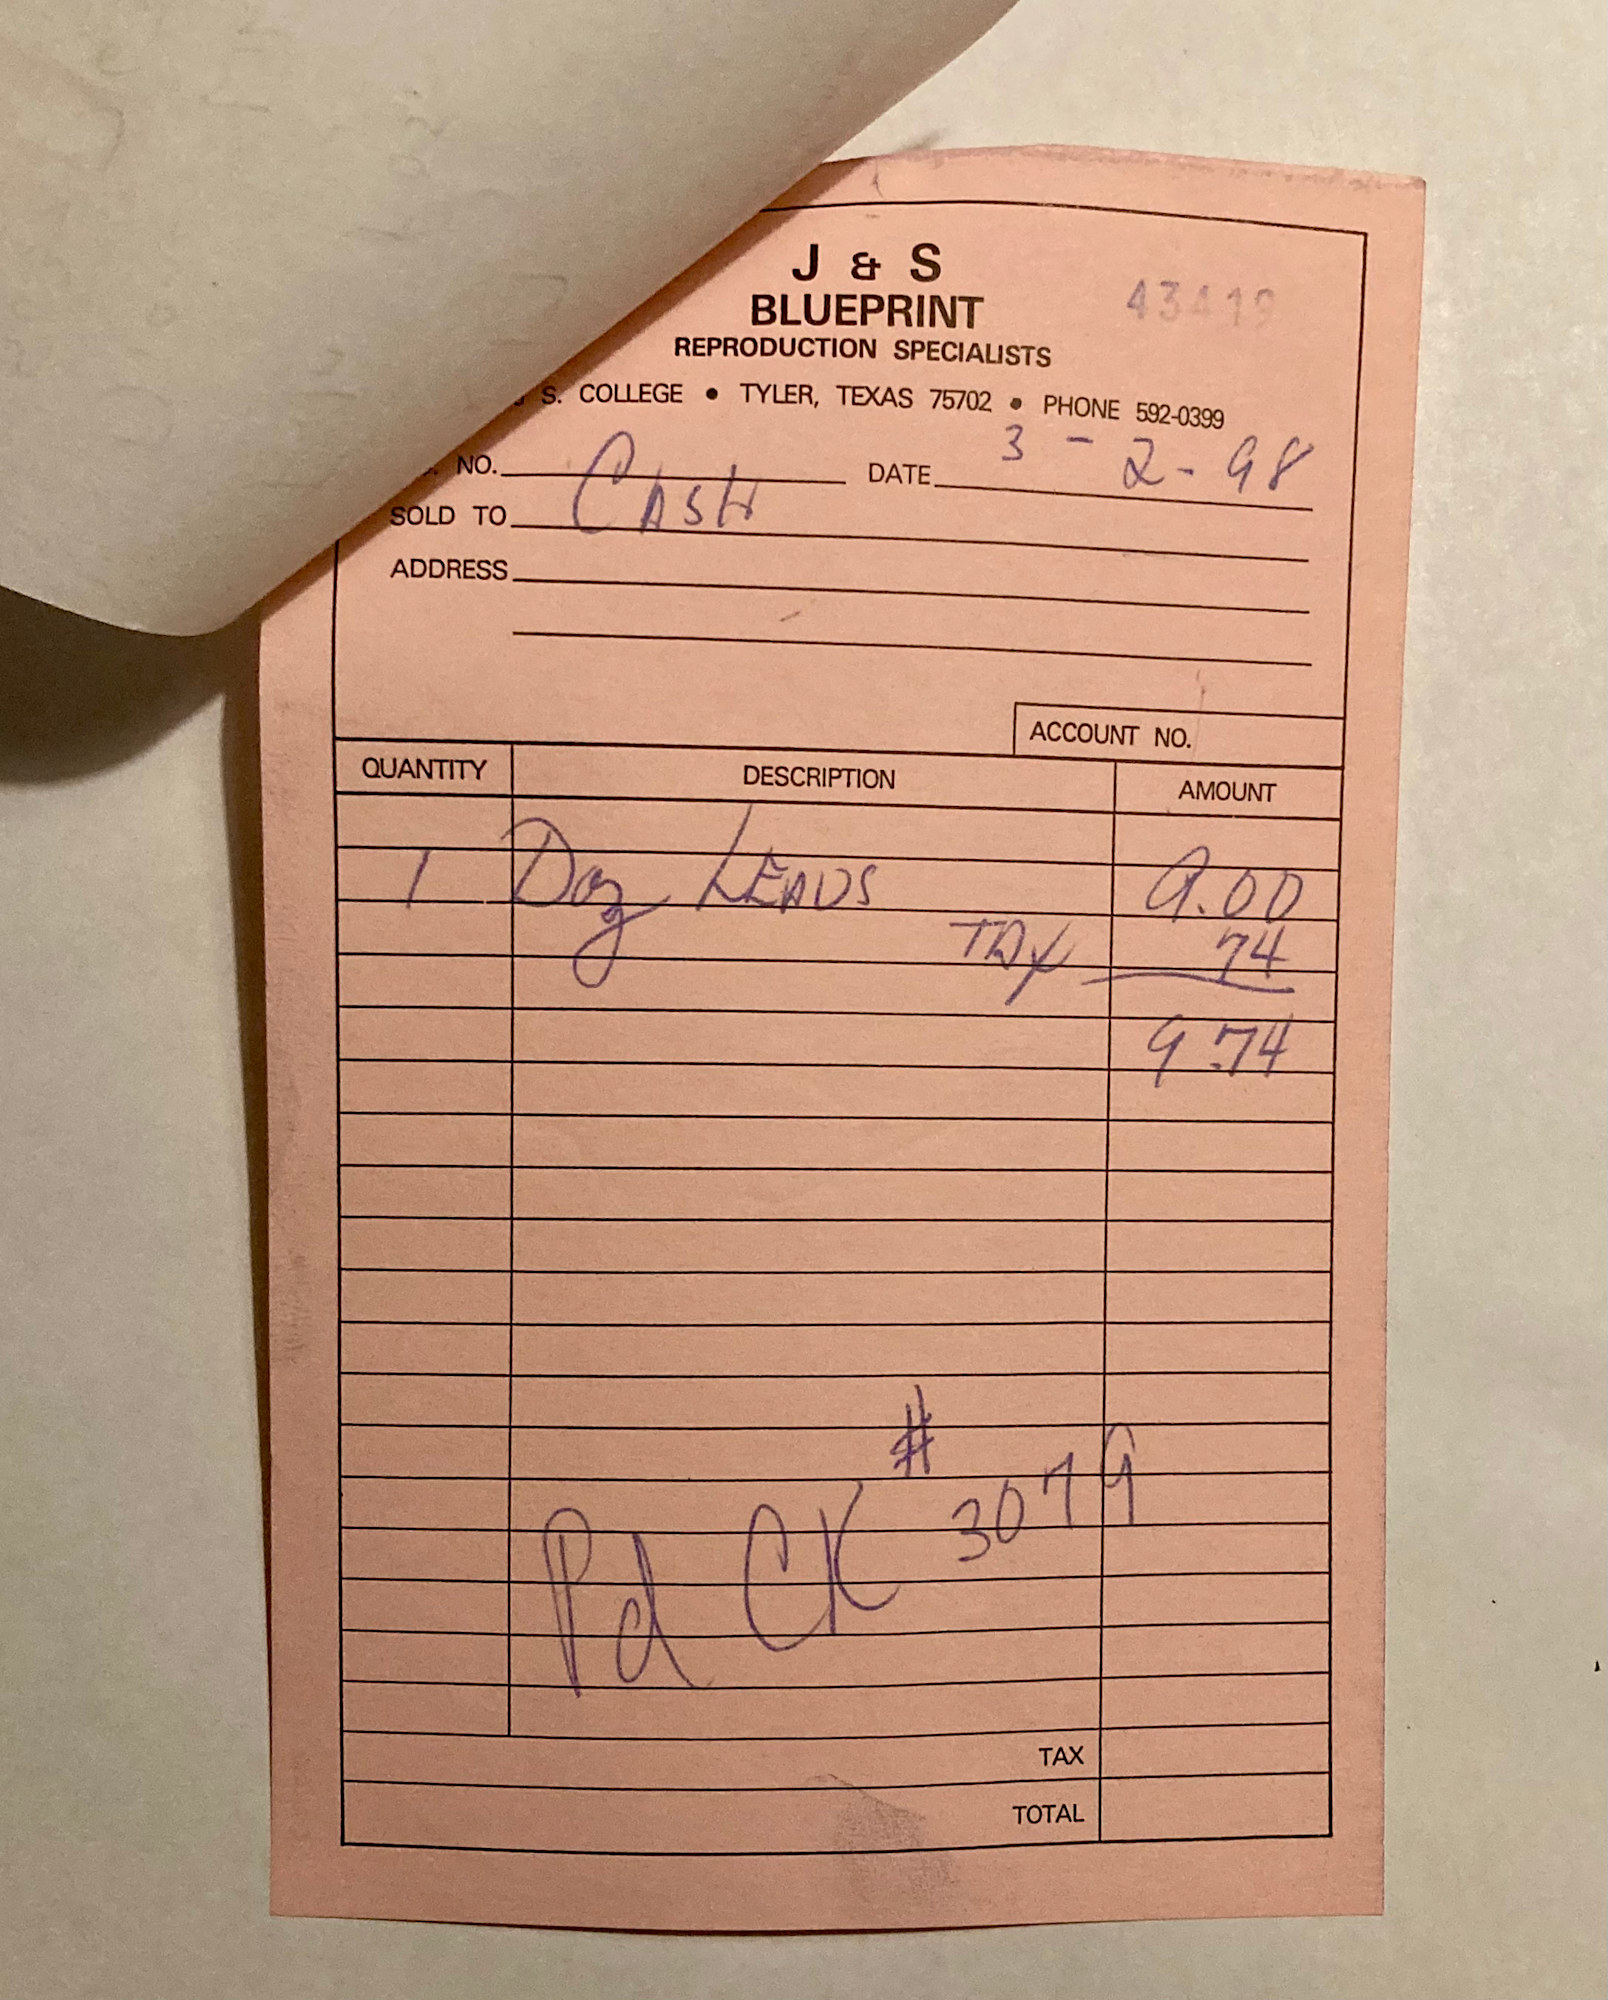 J & S
BLUEPRINT
43419
REPRODUCTION SPECIALISTS
S. COLLEGE • TYLER, TEXAS 75702 • PHONE 592-0399
NO. DATE 3-2-98
SOLD TO CASH
ADDRESS
ACCOUNT NO.
QUANTITY DESCRIPTION AMOUNT
1 Doz LEADS 9.00
TAX 74
9.74
Pd CK # 3079
TAX
TOTAL